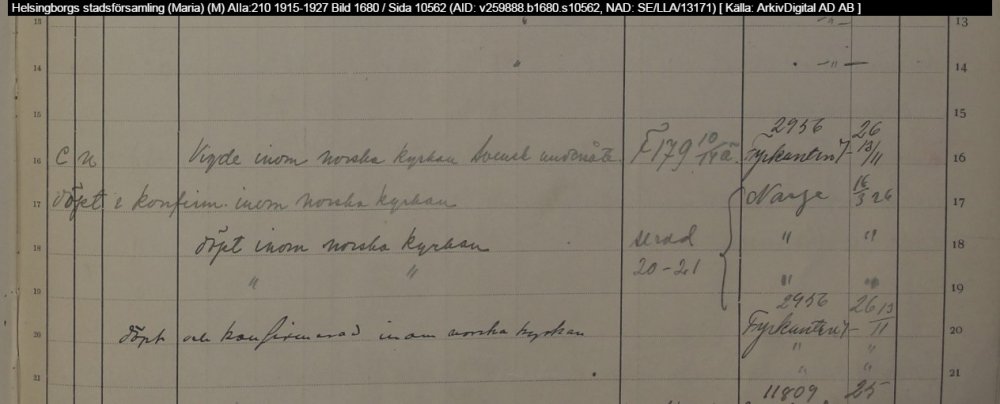 Helsingborgs stadsförsamling (Maria) (M) AIIa:210 1915-1927 Bild 1680 / Sida 10562 (AID: v259888.b1680.s10562, NAD: SE/LLA/13171) [ Källa: ArkivDigital AD AB ]
13 -"- 13
14 " -"- 14
15 15
2956 26
16 C N Vigde inom norska kyrkan Svensk undersåte F179 10/19 Fyrkanten 7 13/11 16
17 döpt o konfirm. inom norska kyrkan Norge 16/3 26 17
18 döpt inom norska kyrkan se rad " " 18
20-21
" " " "
19 19
2956 26 13/11
20 döpt och konfirmerad inom norska kyrkan Fyrkanten 7 20
" "
" "
21 21
11809 25